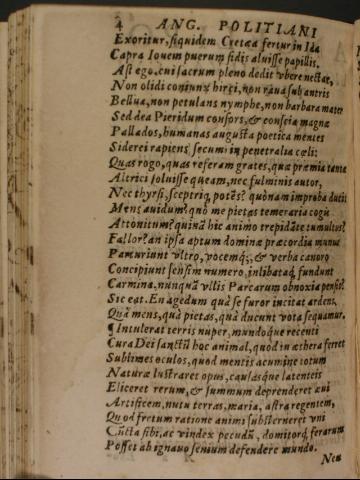 4 ANG. POLITIANI
Exoritur, siquidem Cretæa fertur in Ida
Capra Iouem puerum fidis aluisse papillis.
Ast ego, cui sacrum pleno dedit vbere nectar,
Non olidi coniunx hirci, non raua sub antris
Bellua, non petulans nymphe, non barbara mater
Sed dea Pieridum consors, & conscia magnæ
Pallados, humanas augusta poetica mentes
Siderei rapiens secum in penetralia cœli:
Quas rogo, quas referam grates, quæ præmia tantæ
Altrici soluisse queam, nec fulminis autor,
Nec thyrsi, sceptriq; potẽs? quonam improba ducis
Mens auidum? quò me pietas temeraria cogis
Attonitum? quinã hic animo trepidãte tumultus?
Fallor? an ipsa aptum dominæ præcordia munus
Parturiunt vltro, vocemq́;, & verba canoro
Concipiunt sensim numero, inlibataq́; fundunt
Carmina, nunquã vllis Parcarum obnoxia pensis?
Sic eat. En agedum quà se furor incitat ardens,
Quà mens, quà pietas, quà ducunt vota sequamur.
¶ Intulerat terris nuper, mundoque recenti
Cura Dei sanctũ hoc animal, quod in æthera ferret
Sublimes oculos, quod mentis acumine totum
Naturæ lustraret opus, causasque latenteis
Eliceret rerum, & summum deprenderet æui
Artificem, nutu terras, maria, astra regentem,
Quod fretum ratione animi substerneret vni
Cũcta sibi, ac vindex pecudũ, domitorq́; ferarum
Posset ab ignauo senium defendere mundo.
Neu